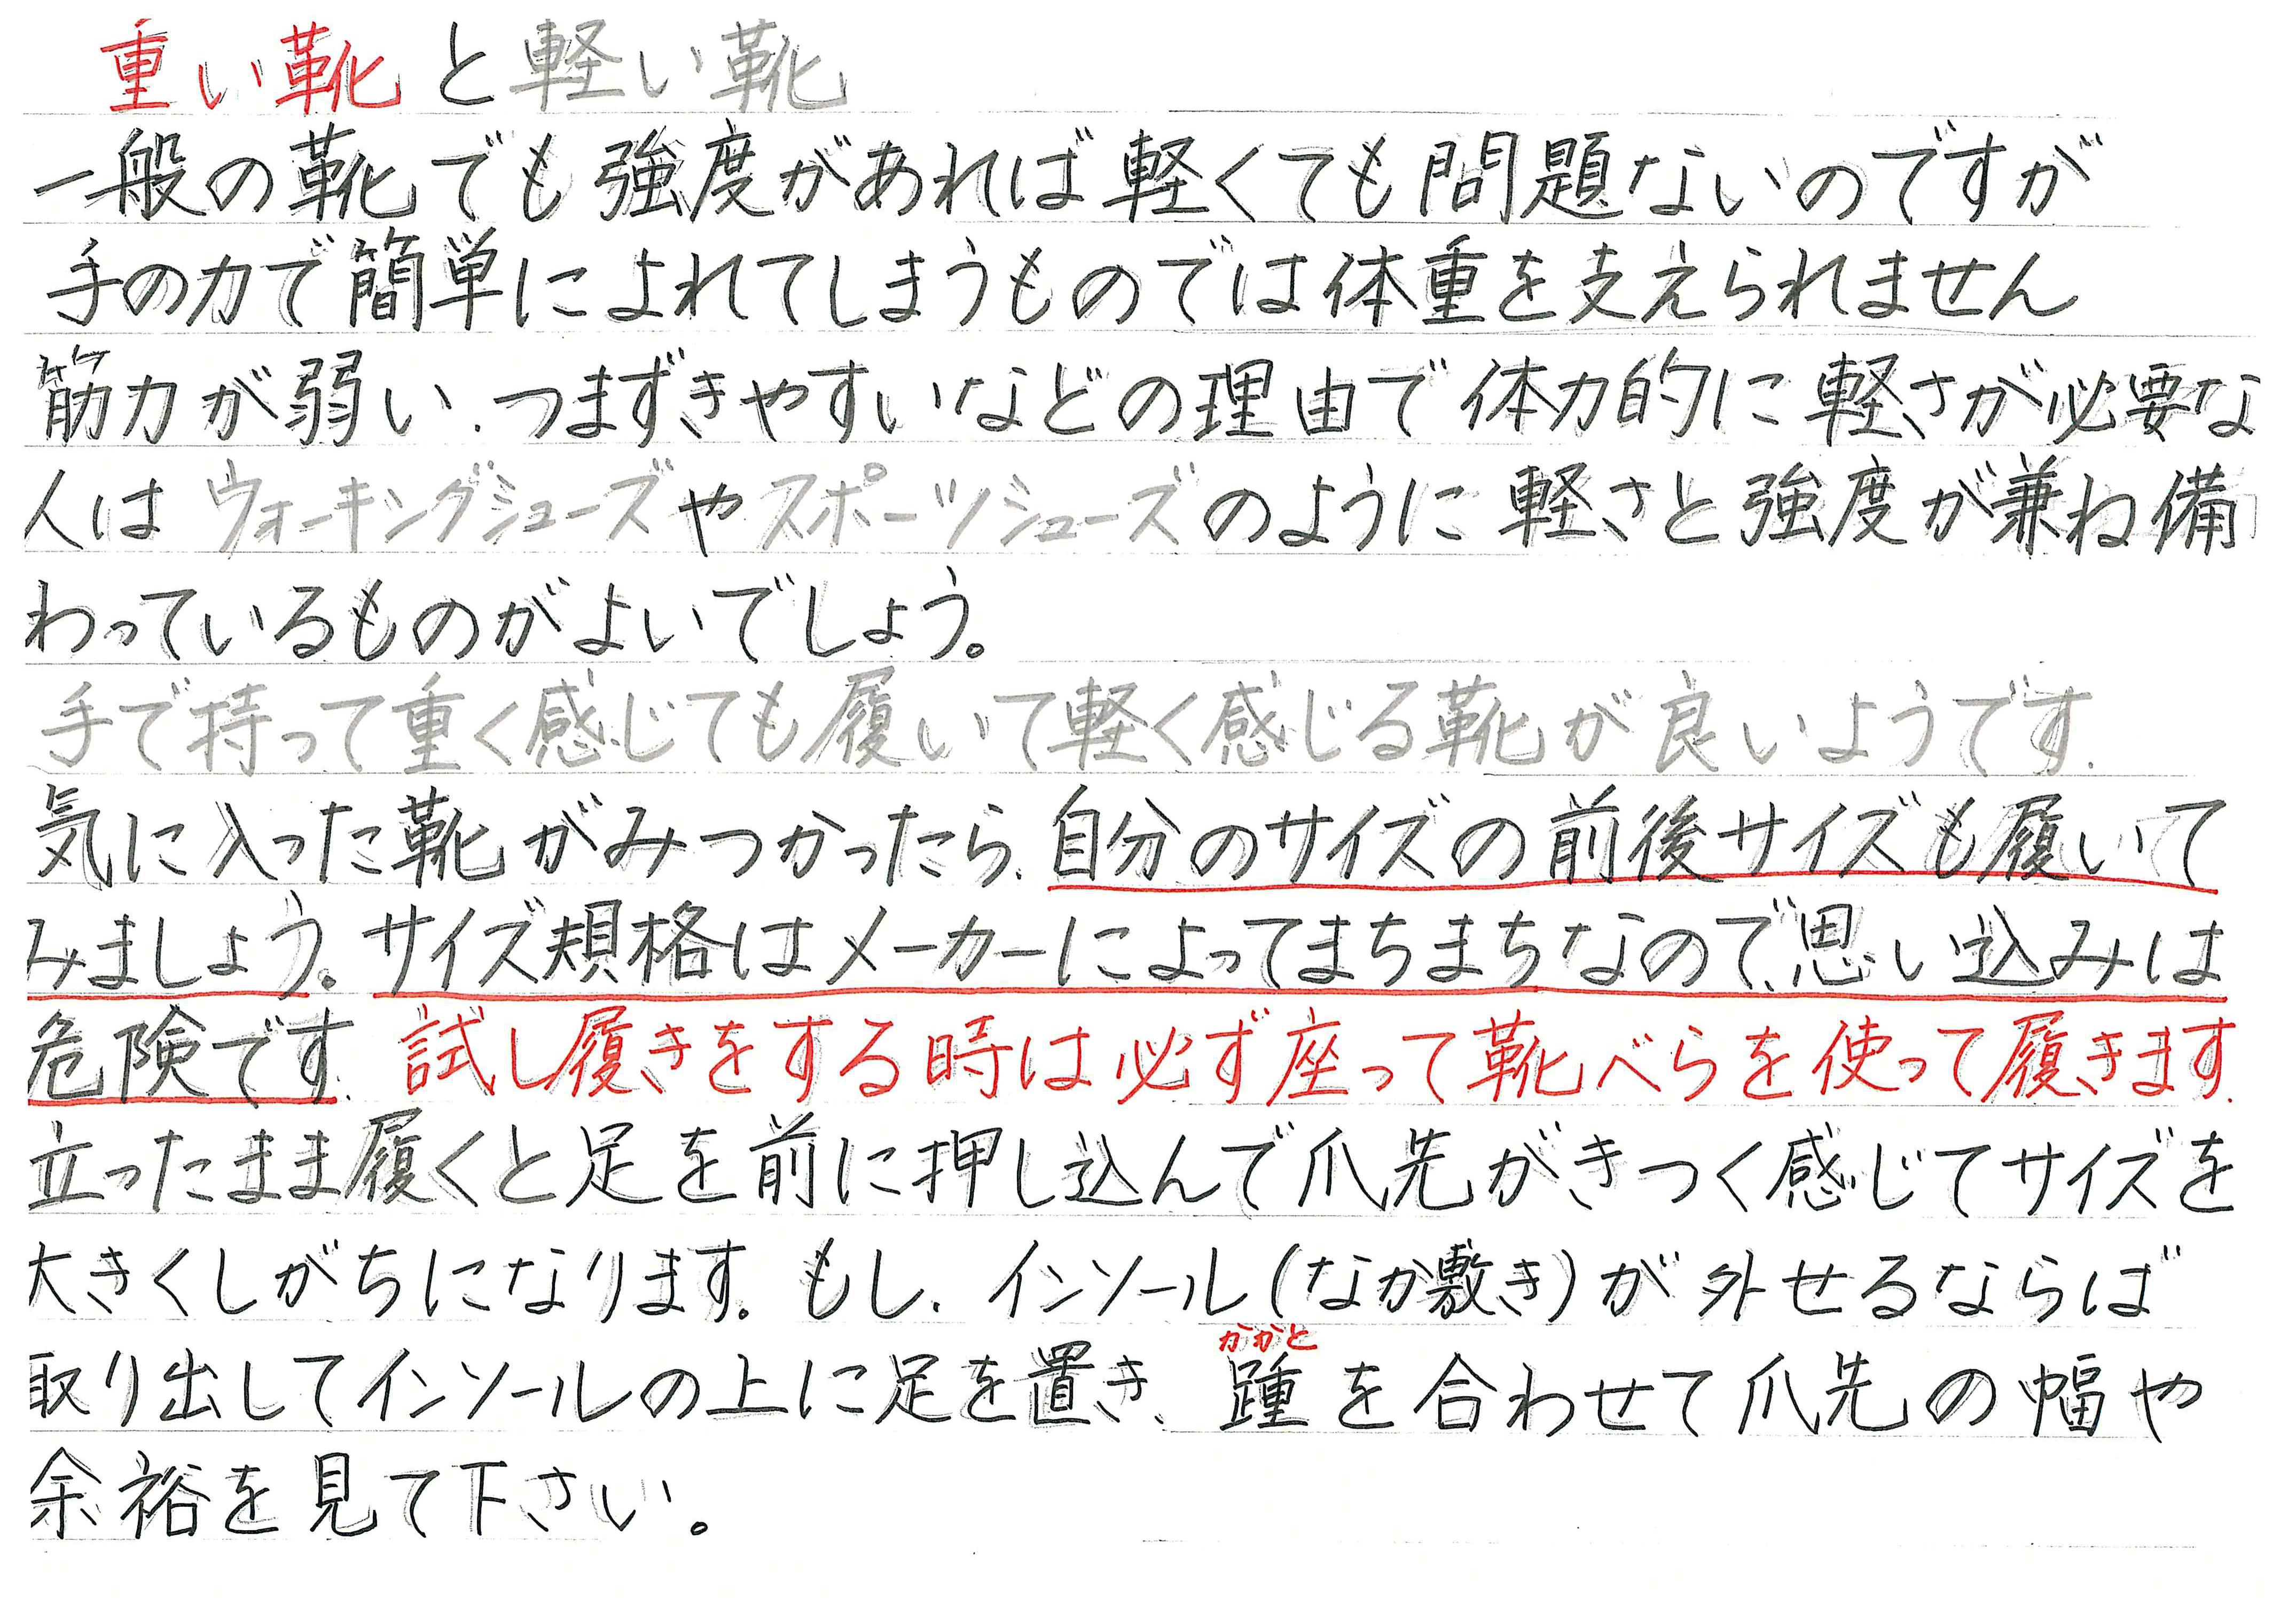 重い靴と軽い靴
一般の靴でも強度があれば軽くても問題ないのですが
手の力で簡単によれてしまうものでは体重を支えられません
筋力が弱い、つまずきやすいなどの理由で体力的に軽さが必要な
人はウォーキングシューズやスポーツシューズのように軽さと強度が兼ね備
わっているものがよいでしょう。
手で持って重く感じても履いて軽く感じる靴が良いようです.
気に入った靴がみつかったら、自分のサイズの前後サイズも履いて
みましょう。サイズ規格はメーカーによってまちまちなので、思い込みは
危険です. 試し履きをする時は必ず座って靴べらを使って履きます.
立ったまま履くと足を前に押し込んで爪先がきつく感じてサイズを
大きくしがちになります。もし、インソール(なか敷き)が外せるならば
かかと
取り出してインソールの上に足を置き、踵を合わせて爪先の幅や
余裕を見て下さい。